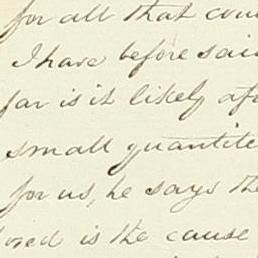 for all that cou
I have before sai
far is it likely afo
small quantite
for us, he says the
oved is the cause